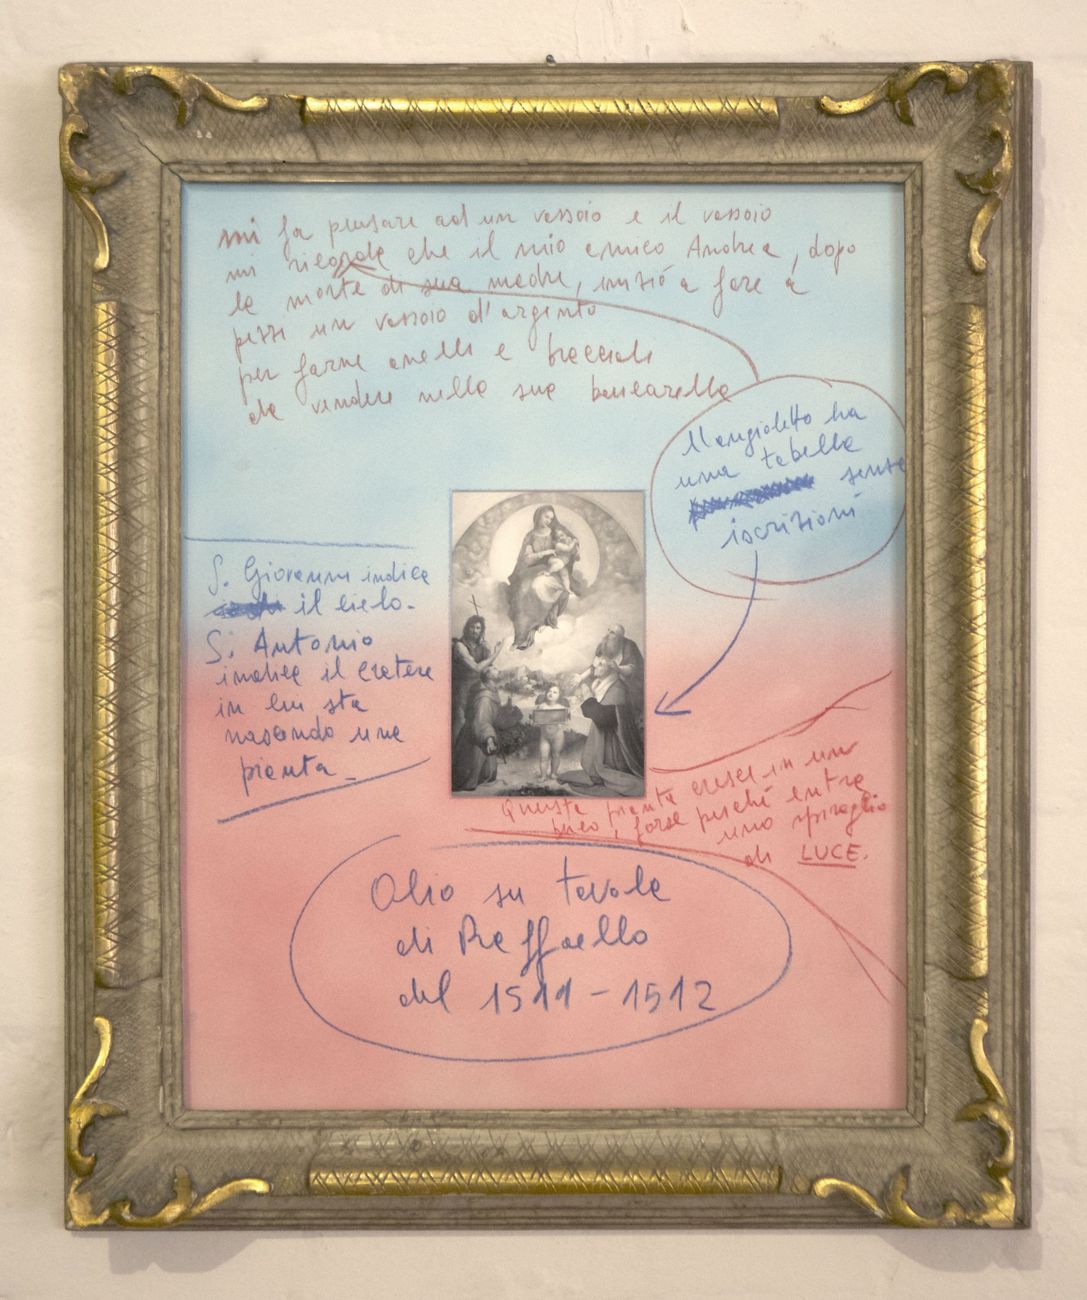 mi fa pensare ad un vassoio e il vassoio
mi ricorda che il mio amico Andrea, dopo
la morte di sua madre, iniziò a fare a
pezzi un vassoio d'argento
per farne anelli e bracciali
da vendere nella sua bancarella
L'angioletto ha
una tabella
senza
iscrizioni
S. Giovanni indica
il cielo.
S. Antonio
indica il cratere
in cui sta
nascendo una
pianta.
Questa pianta cresce in un
buco, forse perché entra
uno spiraglio
di LUCE.
Olio su tavola
di Raffaello
del 1511-1512